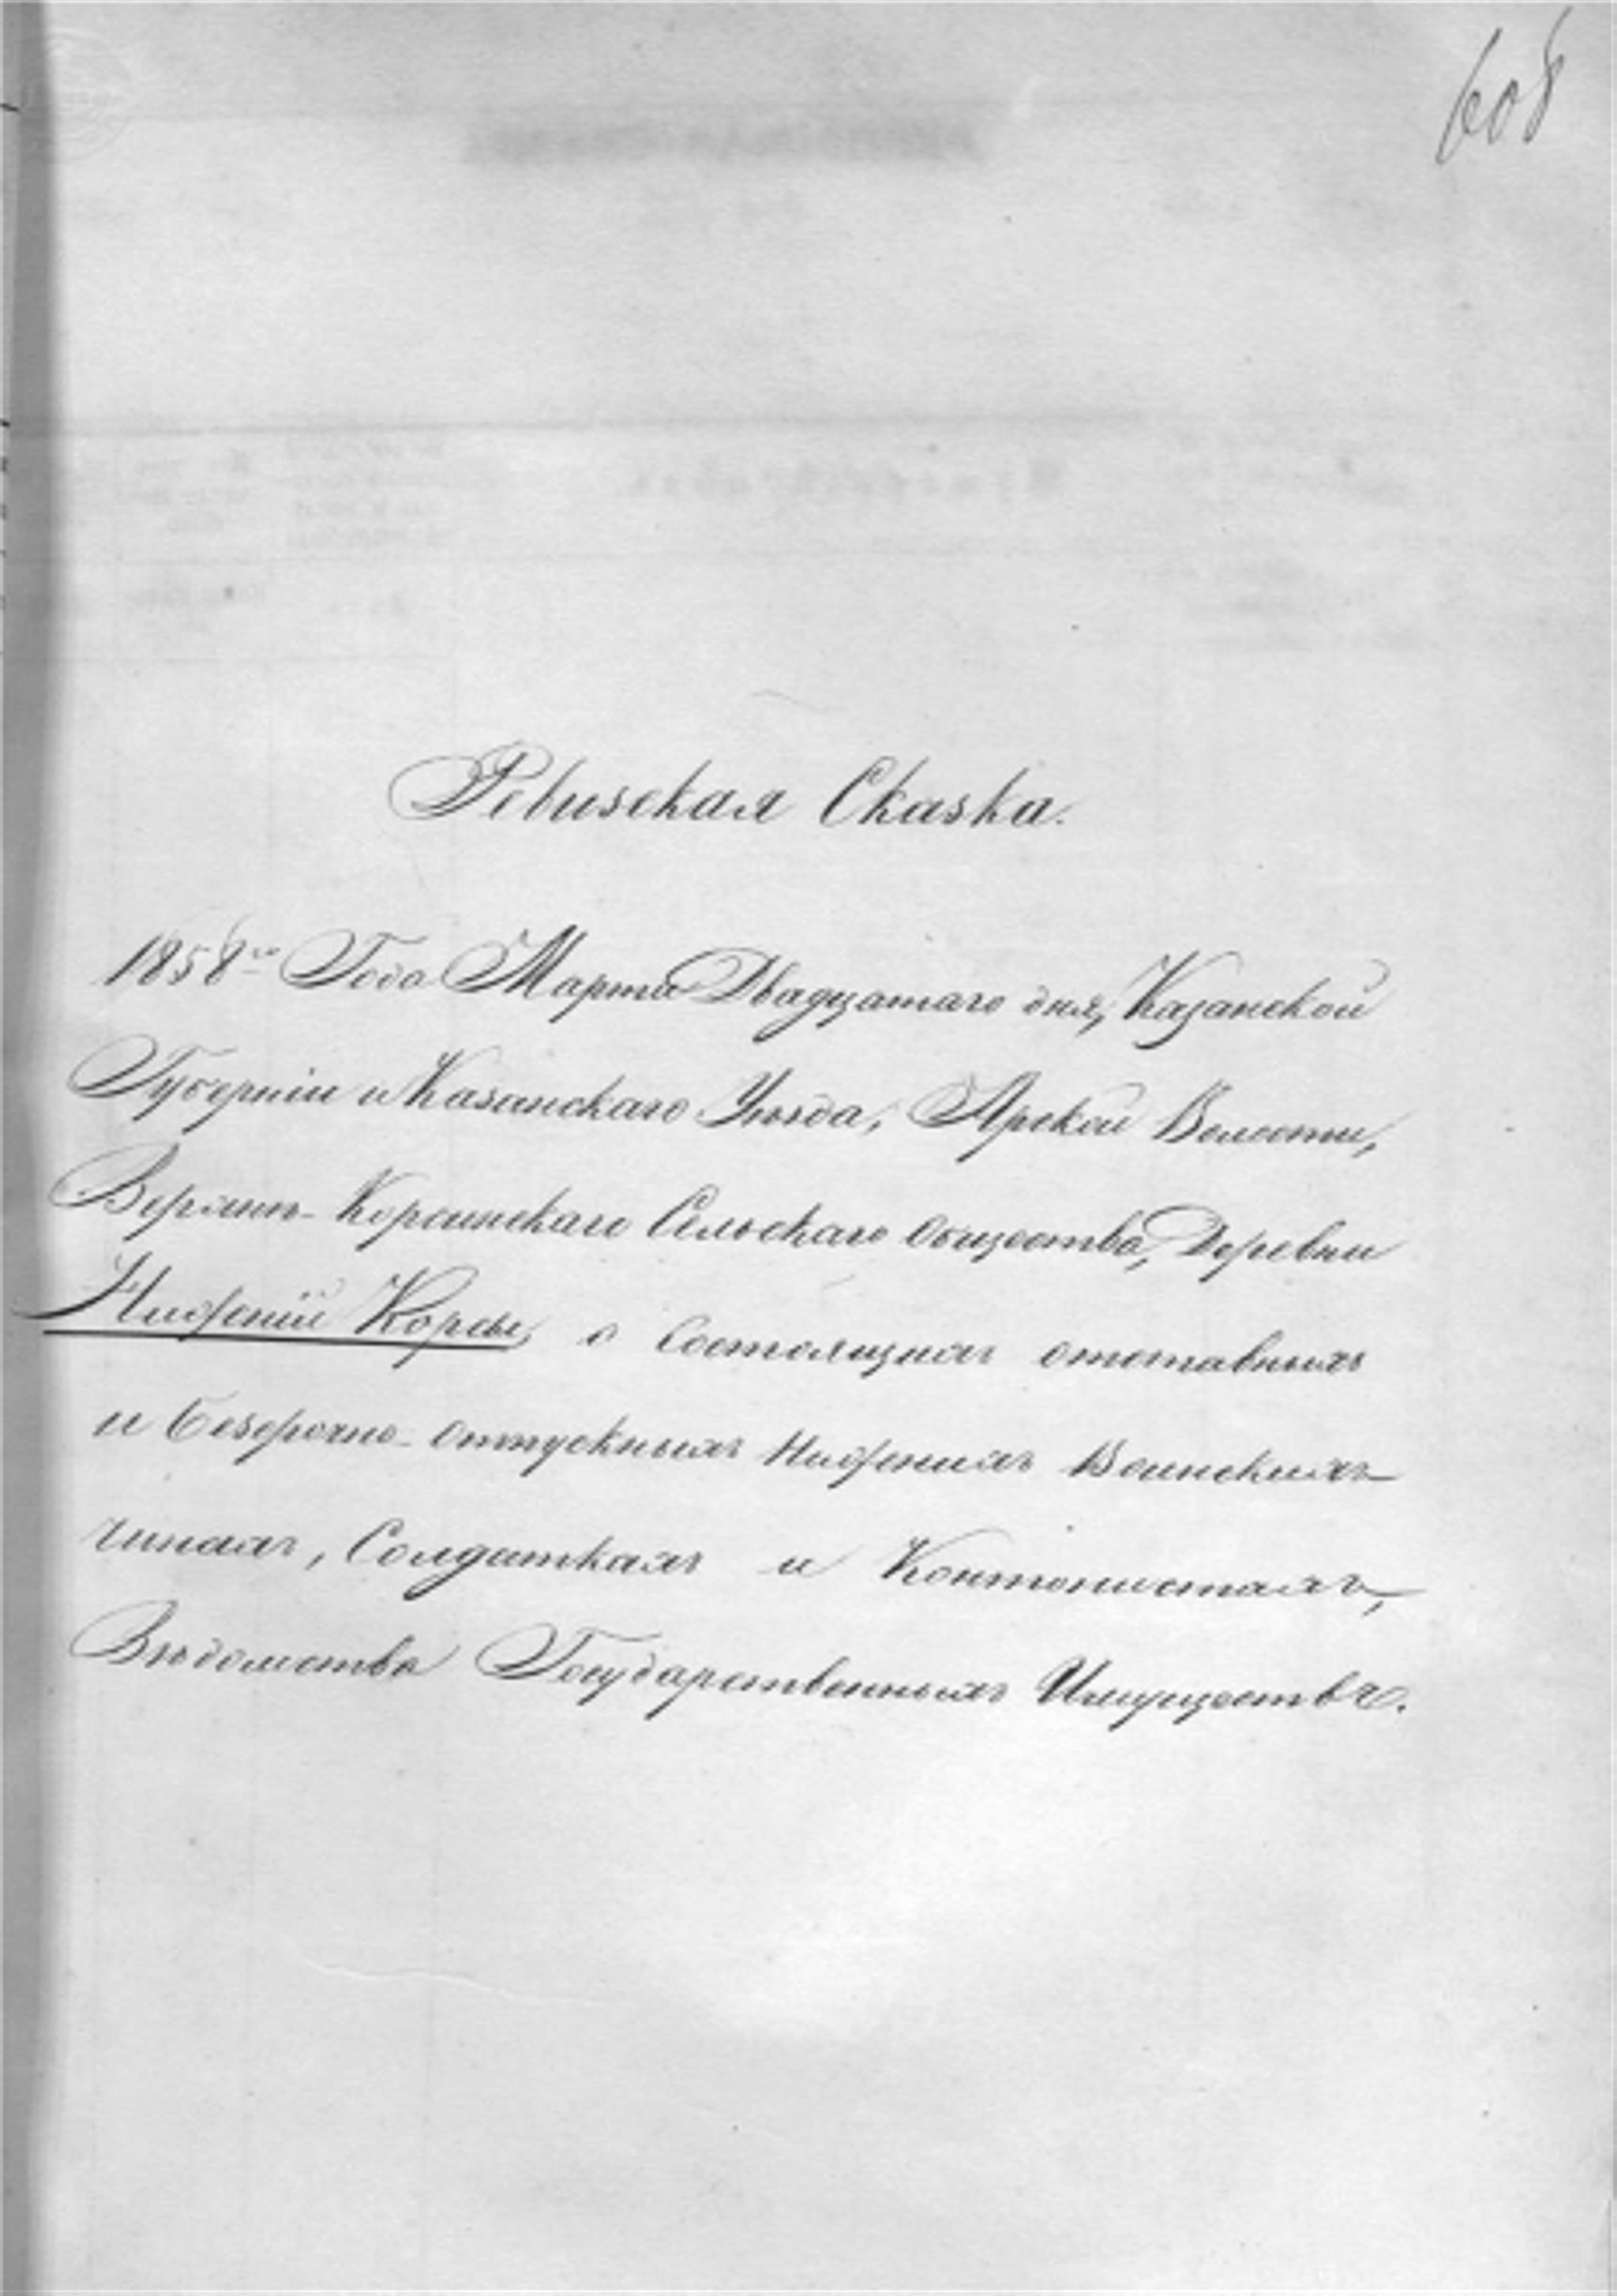 608
Ревизская Сказка.
1858го Года Марта Двадцатаго дня, Казанской
Губерніи и Казанскаго Уѣзда, Арской Волости,
Верхне-Корсинскаго Сельскаго Общества, Деревни
Нижній Корсы, о Состоящихъ отставныхъ
и безсрочно-отпускныхъ Нижнихъ Воинскихъ
чинахъ, Солдаткахъ и Контонистахъ,
Вѣдомства Государственныхъ Имуществъ.